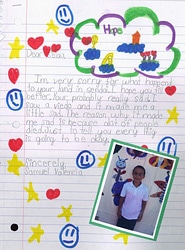 Hope
Dear
I'm very sorry for what happen
to your land in sendai. I hope you do
better. Your probably really sad. I
saw a video and it made me a
little sad. The reason why it made
me sad is because alot of people
died. Just to tell you every thing
is going to be okay.
Sincerely,
Samuel Valencia